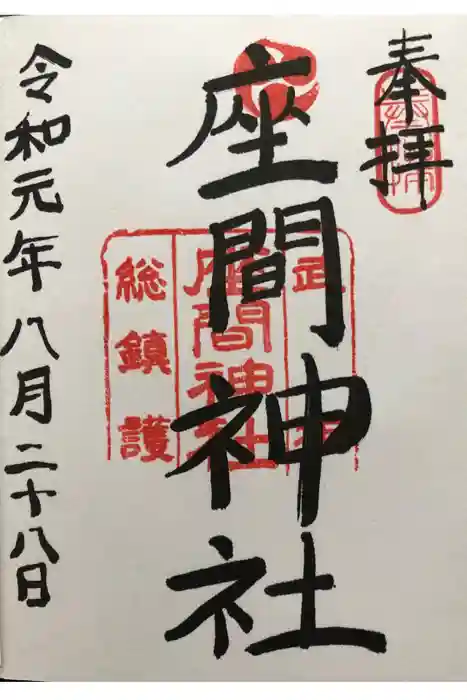 奉拝
座間神社
座間神社
総鎮護
令和元年八月二十八日